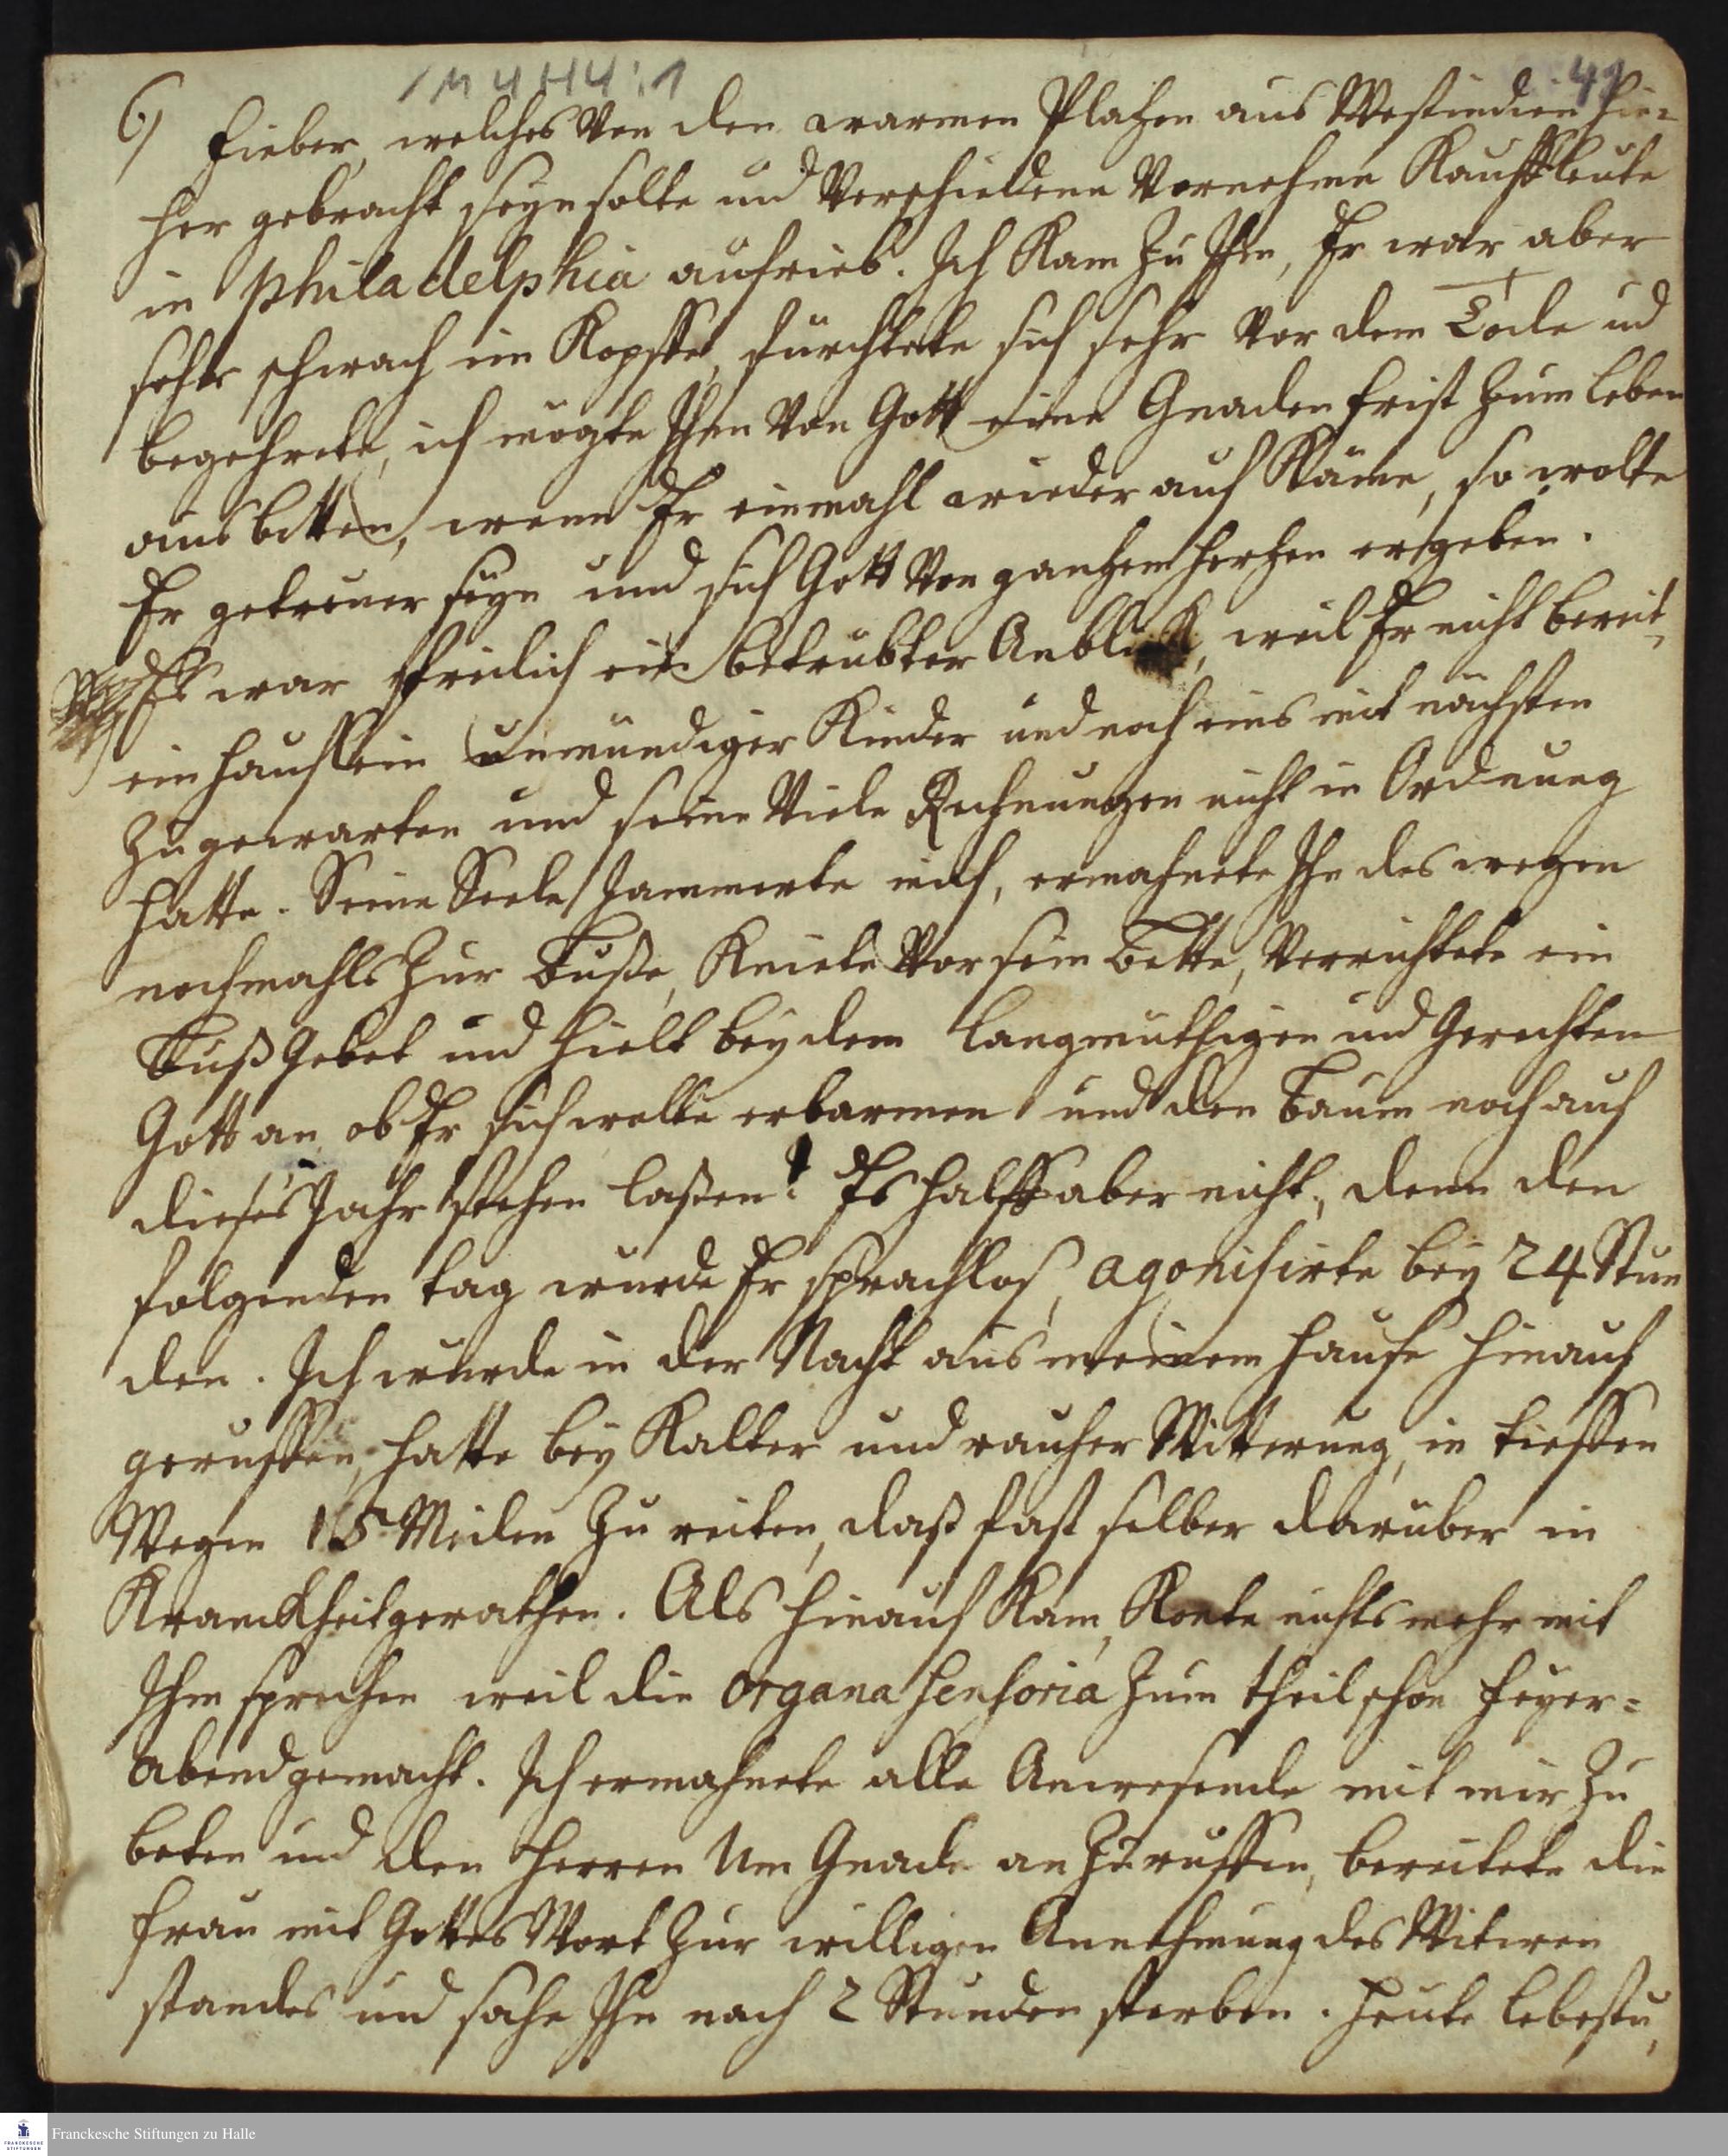 1M 4 H 4 : 1
49
6) Fieber, welches von den warmen Plätzen aus Westindien hie-
her gebracht seyn solte und verschiedene vornehme Kauffleute
in Philadelphia aufrieb. Ich kam zu Ihm, Er war aber
sehr schwach im Kopffe, fürchtete sich sehr vor dem Tode und
begehrete, ich mögte Ihm von Gott eine Gnaden frist zum Leben
ausbitten, wenn Er einmahl wieder auf käme, so wolte
Er getreuer seyn und sich Gott von gantzem Hertzen ergeben.
Es war freilich ein betrübter Anblick, weil Er nicht bereit,
ein Häufflein unmündiger Kinder und noch eins mit nächsten
zu gewarten und seine viele Rechnungen nicht in Ordnung
hatte. Seine Seele jammerte mich, ermahnete Ihn des wegen
nochmahls zur Buße, kniete vor sein Bette, verrichtete ein
Buß Gebet und hielt bey dem langmüthigen und Gerechten
Gott an, ob Er sich wolte erbarmen und den Baum noch auf
dieses Jahr stehen laßen? Es halff aber nicht, denn den
folgenden tag wurde Er sprachlos, agonisirte bey 24 Stun
den. Ich wurde in der Nacht aus meinem Hause hinauf
geruffen, hatte bey kalter und rauher Witterung, in tieffen
Wegen 15 Meilen zu reiten, daß fast selber darüber in
Kranckheit gerathen. Als hinauf kam, konte nichts mehr mit
Ihm sprechen weil die organa sensoria zum theil schon Feyer-
abend gemacht. Ich ermahnete alle Anwesende mit mir zu
beten und den Herren um Gnade an zu ruffen, bereitete die
Frau mit Gottes Wort zur willigen Annehmung des Witwen
standes und sahe Ihn nach 2 Stunden sterben. Heute lebestu,
Franckesche Stiftungen zu Halle